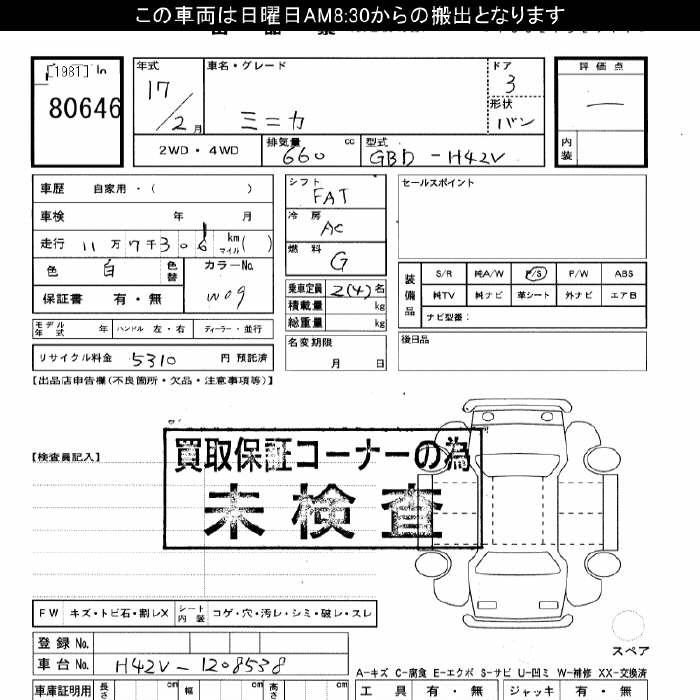 この車両は日曜日AM8:30からの搬出となります
[1981] In
80646
年式
17/2月
車名・グレード
ミニカ
ドア
3
形状
バン
評価点
―
内装
2WD・4WD
排気量 cc
660
型式
GBD-H42V
車歴 自家用・( )
車検 年 月
走行 11万7千306 km マイル ( )
色 白 色替
カラーNo.
W09
保証書 有・無
シフト
FAT
冷房
AC
燃料
G
乗車定員 2(4)名
積載量 kg
総重量 kg
セールスポイント
装備品
S/R 純A/W P/S P/W ABS
純TV 純ナビ 革シート 外ナビ エアB
ナビ型番:
モデル年式 年 ハンドル 左・右 ディーラー・並行
リサイクル料金 5310 円 預託済
名変期限
月 日
後日品
【出品店申告欄(不良箇所・欠品・注意事項等)】
【検査員記入】
買取保証コーナーの為
未検査
FW キズ・トビ石・割レX シート内装 コゲ・穴・汚レ・シミ・破レ・スレ
スペア
登録No.
車台No. H42V-1208538
A-キズ C-腐食 E-エクボ S-サビ U-凹ミ W-補修 XX-交換済
車庫証明用 長さ cm 幅 cm 高さ cm
工具 有・無 ジャッキ 有・無